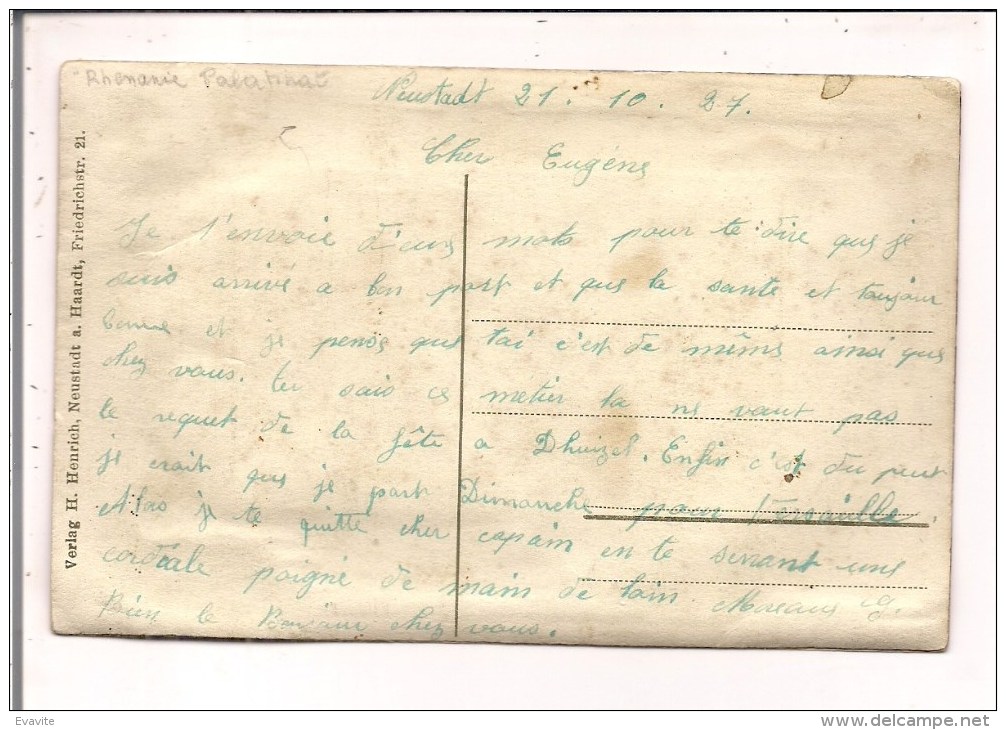 Rhénanie Palatinat
Neustadt 21. 10. 27.
Cher Eugène
Je t'envoie d'eux mots pour te dire que je
suis arrivé a bon port et que la sante et toujour
bonne et je pense que tai c'est de même ainsi que
chez vous. tu sais ce metier la ne vaut pas
le requet de la fête a Dhuizel. Enfin c'est du peut
je crait que je part Dimanche pour Versaille.
Alors je te quitte cher copain en te serrant une
cordiale poigné de main de loin Moreau G.
Bien le Bonjour chez vous.
Verlag H. Henrich, Neustadt a. Haardt, Friedrichstr. 21.
Evavite
www.delcampe.net